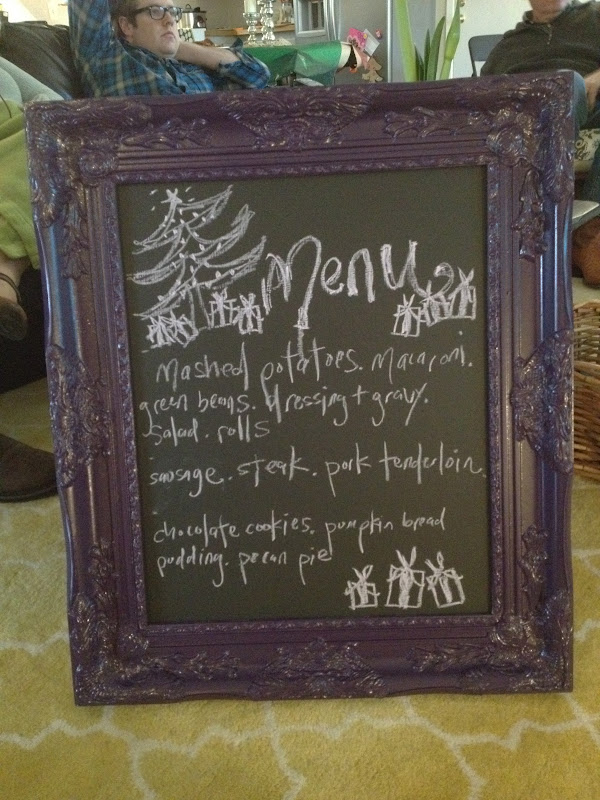 Menu
Mashed potatoes. Macaroni.
green beans. dressing + gravy.
Salad. rolls
sausage. steak. pork tenderloin.
chocolate cookies. pumpkin bread
pudding. pecan pie